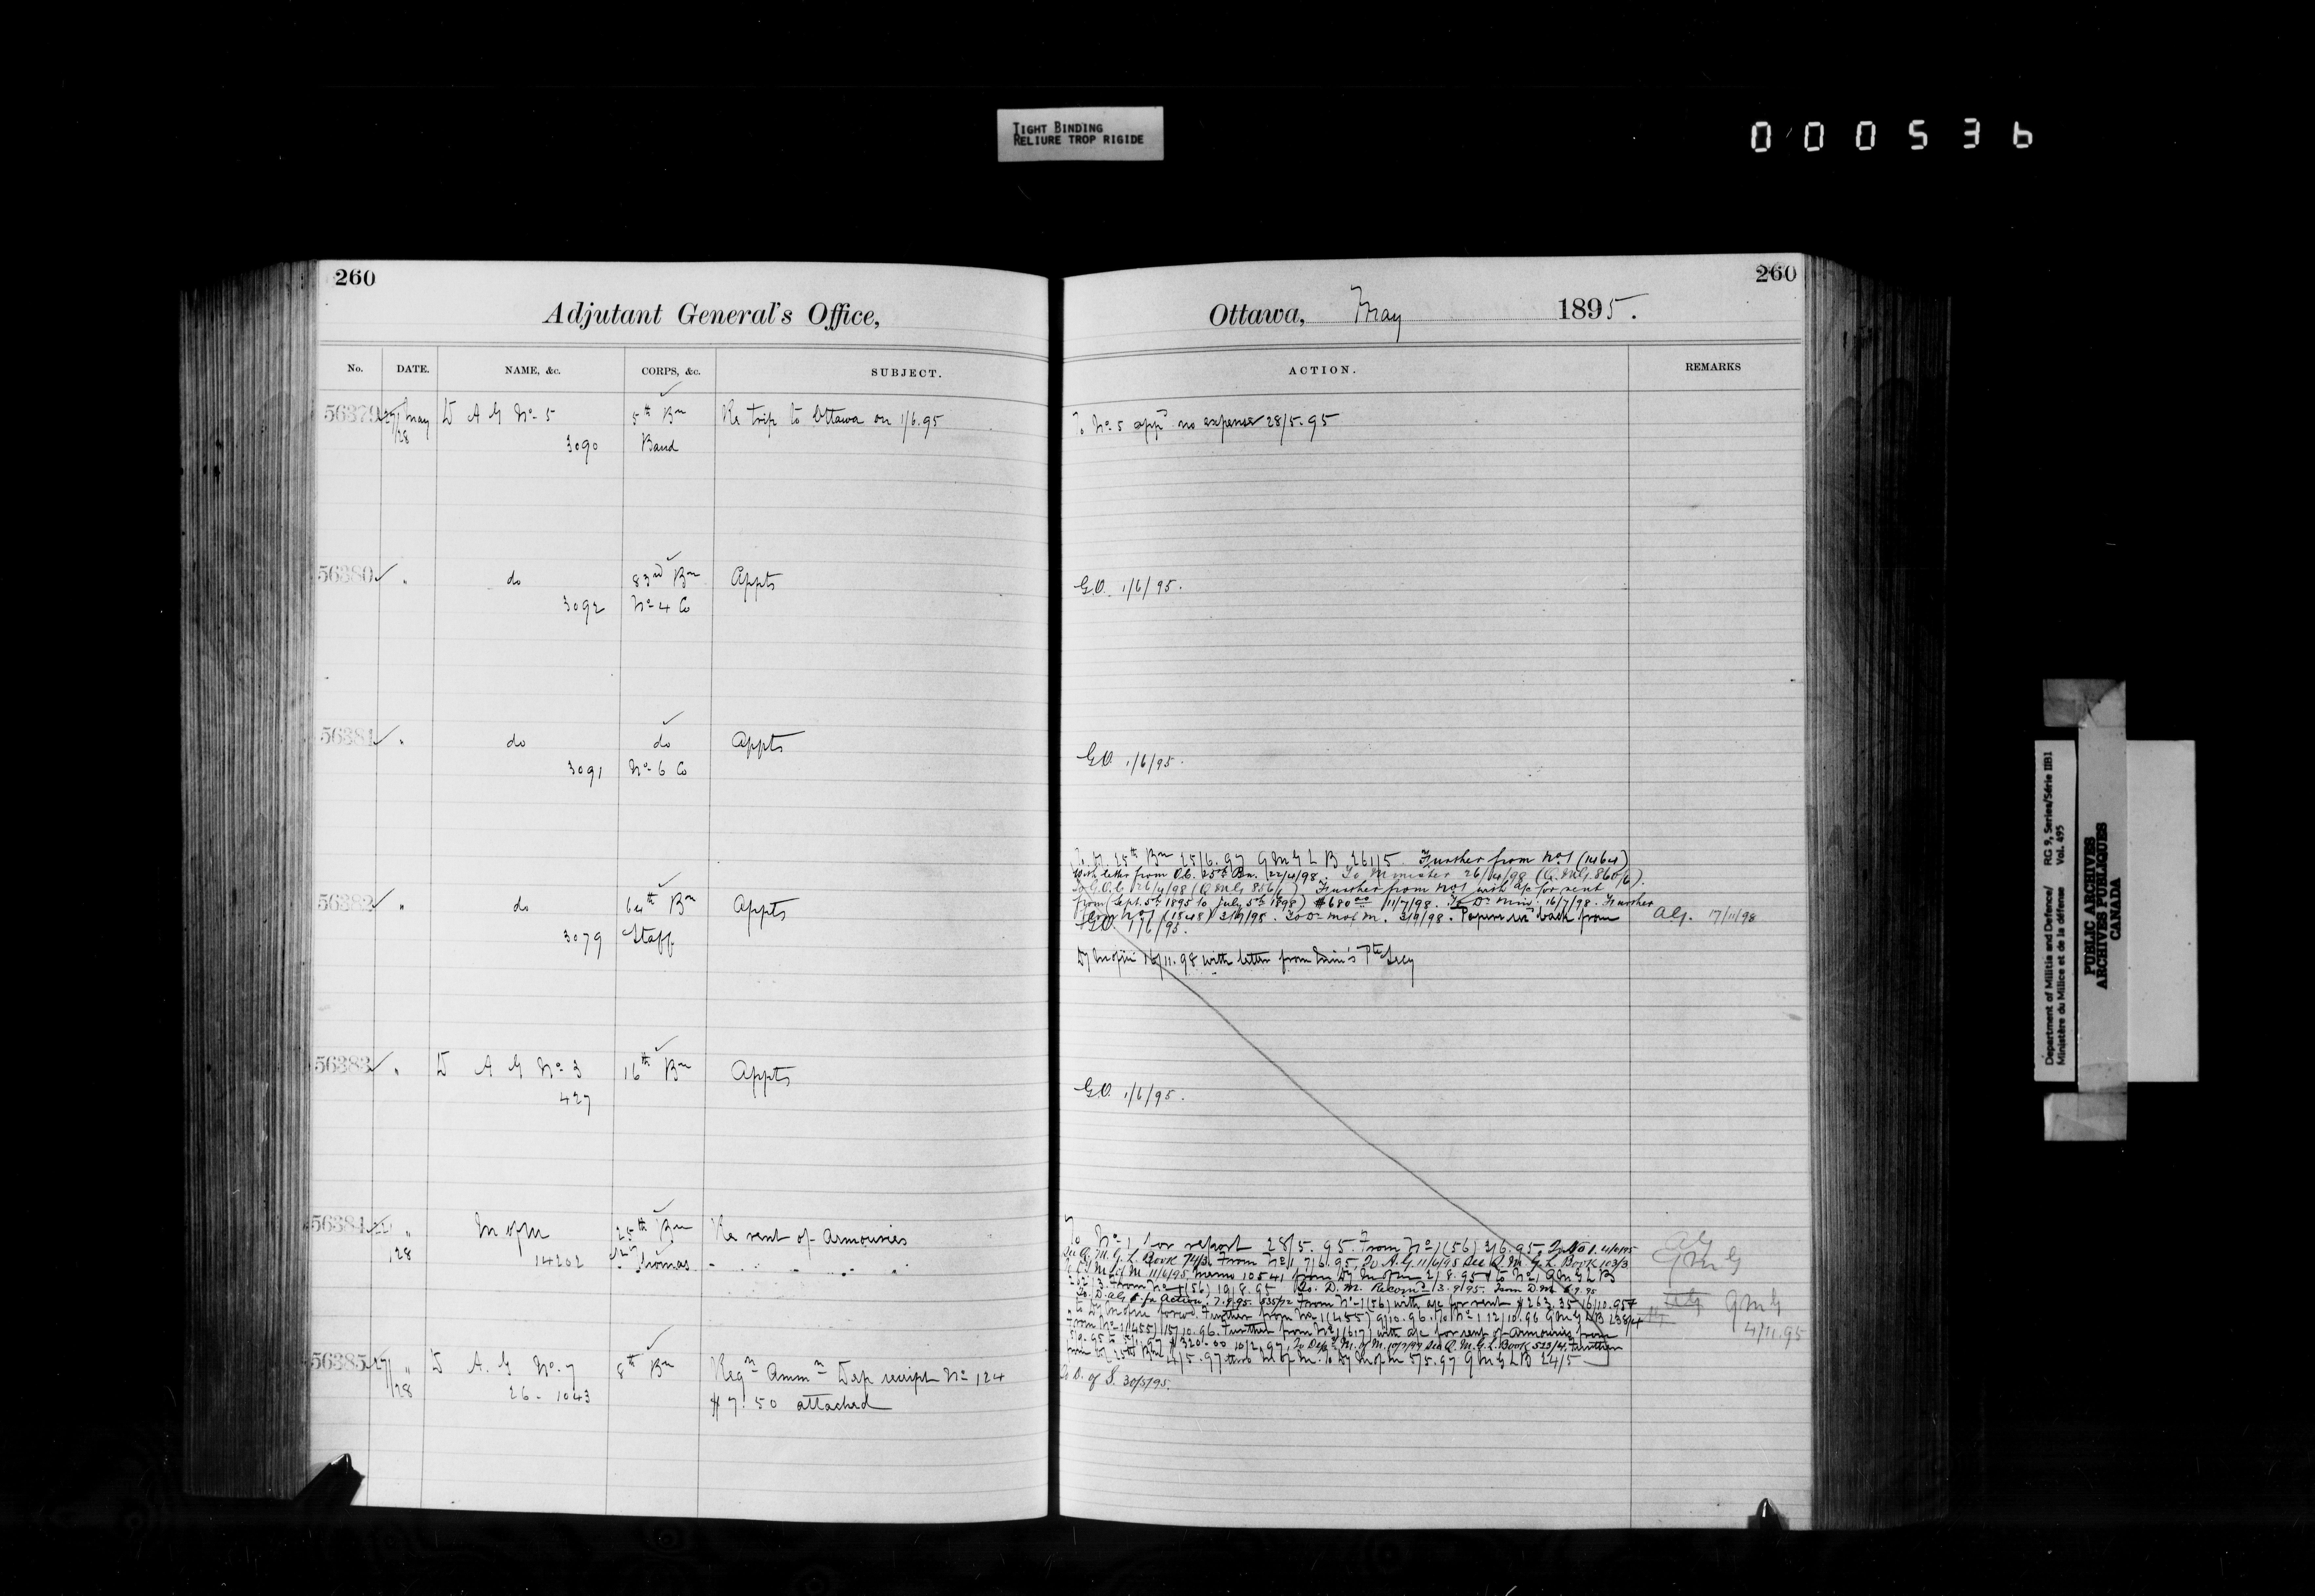 TIGHT BINDING
RELIURE TROP RIGIDE
000536
260
Adjutant General's Office,
No. DATE. NAME, &c. CORPS, &c. SUBJECT.
56379 27/May D A G No 5 5th Bn Re trip to Ottawa on 1/6.95
28 3090 Band
56380 " do 83rd Bn Appts
3092 No 4 Co
56381 " do do Appts
3091 No 6 Co
56382 " do 64th Bn Appts
3079 Staff
56383 " D A G No 3 16th Bn Appts
427
56384 " M of M 25th Bn Re rent of Armouries
28 14202 St Thomas
56385 27 " D A. G No. 7 8th Bn Reqn Ammn Dep receipt No 124
28 26 - 1043 $7.50 attached
260
Ottawa, May 1895.
ACTION. REMARKS
To No 5 appd no expense 28/5.95
G.O. 1/6/95.
G.O. 1/6/95.
25th Bn 25/6.97 Q M G L B 261/5 Further from No 1 (1464)
with letter from O.C. 25th Bn. 22/4/98. To Minister 26/4/98 (Q.M.G. 860/6).
To G.O.C. 26/4/98 (Q.M.G. 856/6) Further from No 1 with a/c for rent
from (Sept. 5th 1895 to July 5th 1898) $680.00 11/7/98. To D. Min. 16/7/98. Further
from No 1 (1548) 2/9/98. To D. M of M. 3/9/98. Papers back from AG. 17/11/98
G.O. 1/6/95.
D M of M 16/11.98 with letter from Min's Pte Secy
G.O. 1/6/95.
To No 1 for report 28/5.95. From No 1 (56) 3/6.95.
See Q.M.G.L. Book 74/3. From No 1 7/6.95. To A.G. 11/6/95 See Q.M.G.L. Book 103/3
11/6/95 10541 from D M of M 2/8.95 to No 1 Q M G L B
From No 1 (56) 19/8.95 To D.M. Recomd 3.9/95. From D.M.
for Action. 7.9.95. From No 1 (56) with a/c for rent $263.35 16/10.95
Further from No 1 (455) 9/10.96. To No 1 12/10.96 Q M G L B 238/4 Q M G
From No 1 (455) 15/10.96. Further from No 1 (617) with a/c for rent of Armouries from 4/11.95
5/9.95 to 5/1.97 $320.00 10/2.97. To Dep M. of M. See Q.M.G.L. Book 523/4. Further
from 25th Bn 4/5.97 thro M of M. To D M of M 5/5.97 Q M G L B 24/5
To D. of S. 30/5/95.
Department of Militia and Defence/ RG 9, Series/Série IIB1
Ministère du Milice et de la défense Vol. 495
PUBLIC ARCHIVES
ARCHIVES PUBLIQUES
CANADA